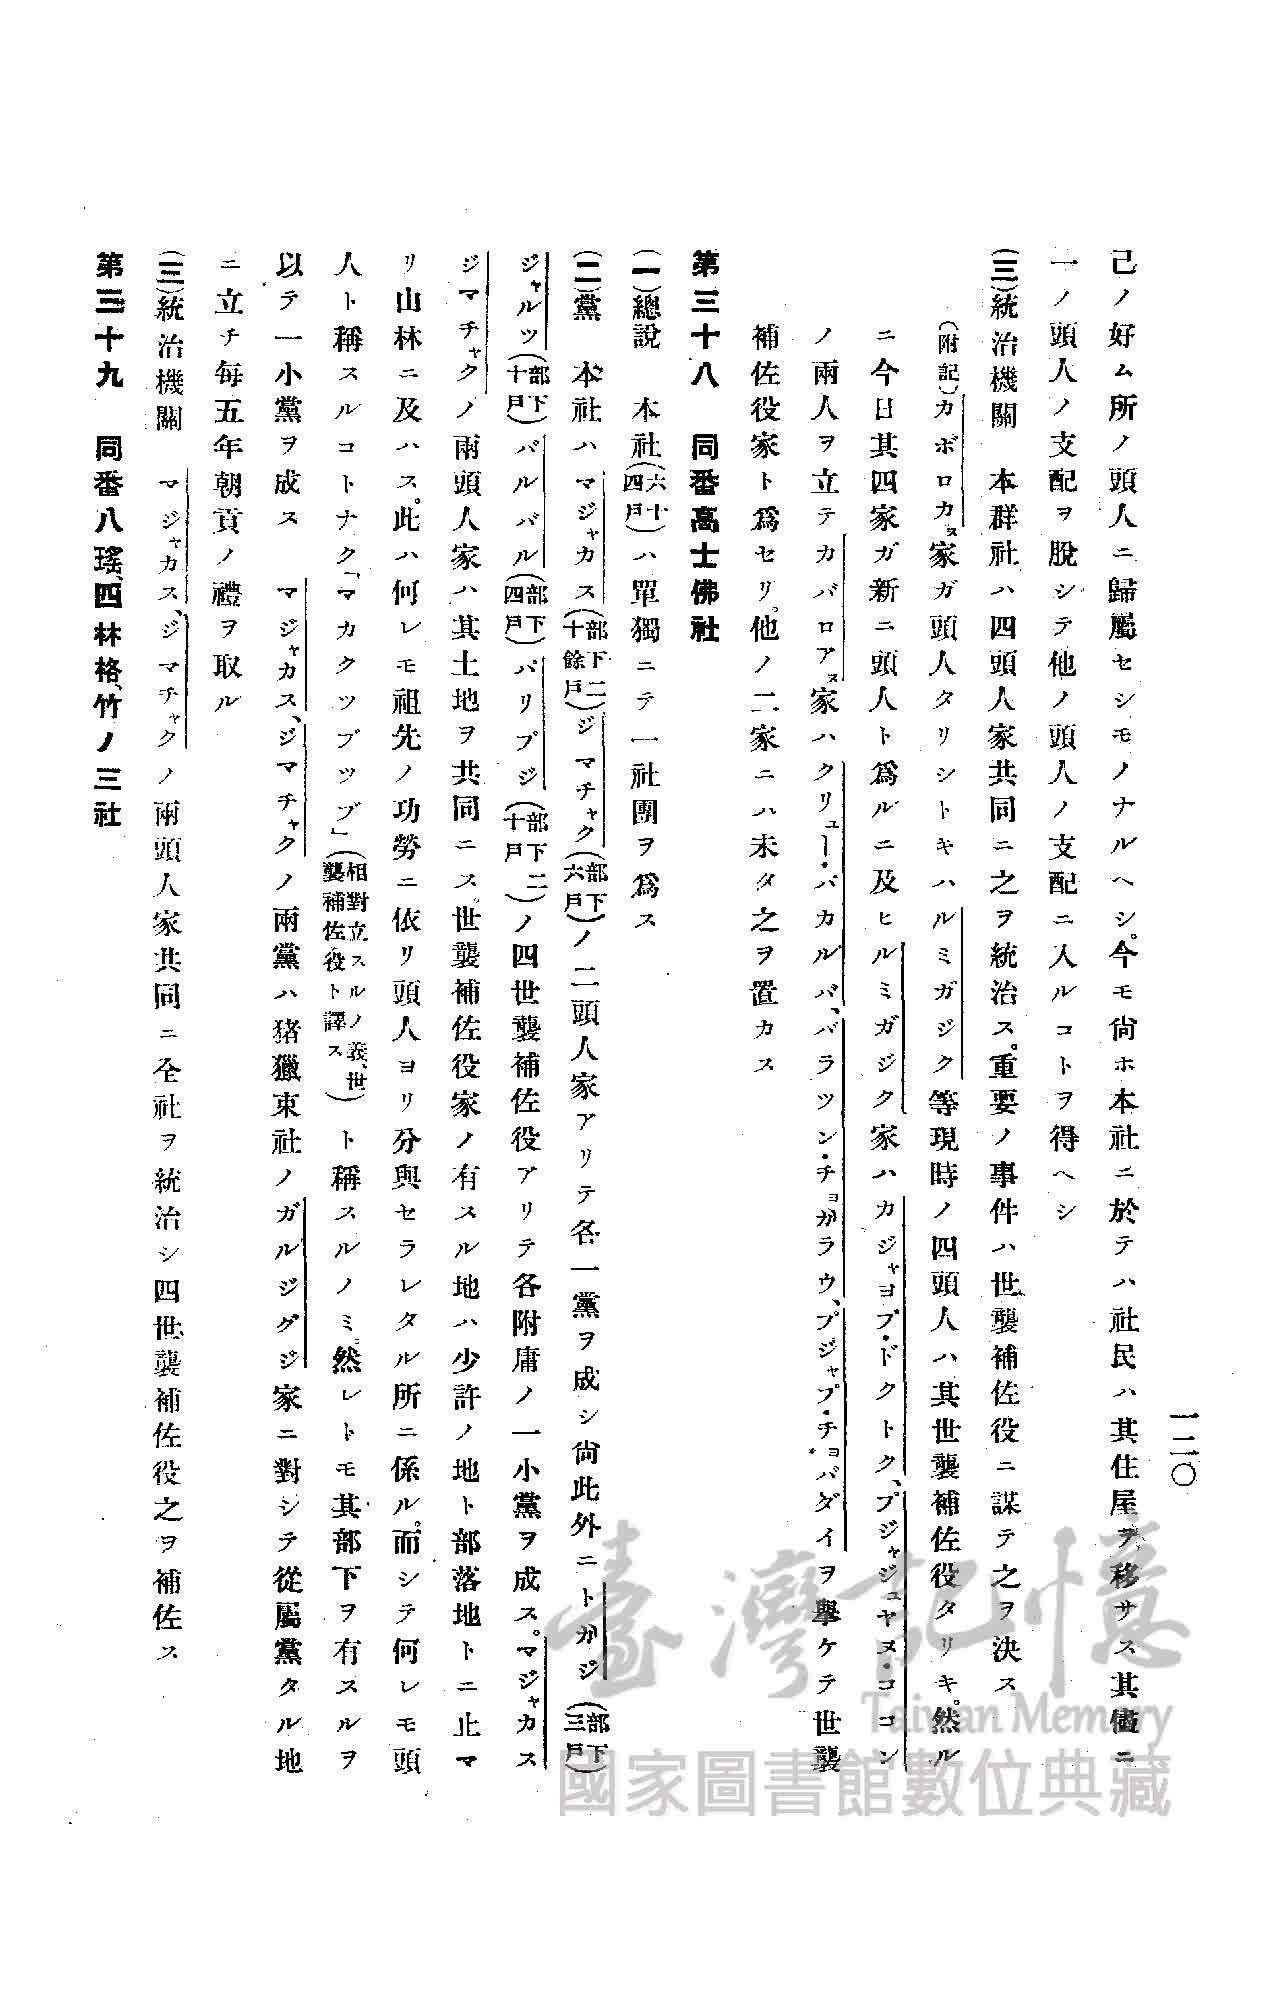 一二〇
己ノ好ム所ノ頭人ニ歸屬セシモノナルヘシ。今モ尙ホ本社ニ於テハ社民ハ其住屋ヲ移サス其儘ニ
一ノ頭人ノ支配ヲ脫シテ他ノ頭人ノ支配ニ入ルコトヲ得ヘシ
(三)統治機關　本群社ハ四頭人家共同ニ之ヲ統治ス。重要ノ事件ハ世襲補佐役ニ謀テ之ヲ決ス
(附記)カボロカス家ガ頭人タリシトキハルミガジク等現時ノ四頭人ハ其世襲補佐役タリキ。然ル
ニ今日其四家ガ新ニ頭人ト爲ルニ及ヒルミガジク家ハカジャヨブ・ドクトク、プジャジュヤヌ・ココン
ノ兩人ヲ立テカバロアス家ハクリュー・バカルバ、バラツン・チョガラウ、プジャプ・チョバダイヲ擧ケテ世襲
補佐役家ト爲セリ。他ノ二家ニハ未タ之ヲ置カス
第三十八　同番高士佛社
(一)總說　本社(六十四戶)ハ單獨ニテ一社團ヲ爲ス
(二)黨　本社ハマジャカス(部下二十餘戶)ジマチャク(部下六戶)ノ二頭人家アリテ各一黨ヲ成シ尙此外ニトガジ(部下三戶)
ジャルツ(部下十戶)バルバル(部下四戶)パリプジ(部下二十戶)ノ四世襲補佐役アリテ各附庸ノ一小黨ヲ成ス。マジャカス
ジマチャクノ兩頭人家ハ其土地ヲ共同ニス。世襲補佐役家ノ有スル地ハ少許ノ地ト部落地トニ止マ
リ山林ニ及ハス。此ハ何レモ祖先ノ功勞ニ依リ頭人ヨリ分與セラレタル所ニ係ル。而シテ何レモ頭
人ト稱スルコトナク「マカクツブツブ」(相對立スルノ義、世襲補佐役ト譯ス)ト稱スルノミ。然レトモ其部下ヲ有スルヲ
以テ一小黨ヲ成ス　マジャカス、ジマチャクノ兩黨ハ猪獵東社ノガルジグジ家ニ對シテ從屬黨タル地
ニ立チ每五年朝貢ノ禮ヲ取ル
(三)統治機關　マジャカス、ジマチャクノ兩頭人家共同ニ全社ヲ統治シ四世襲補佐役之ヲ補佐ス
第三十九　同番八瑤、四林格、竹ノ三社
臺灣記憶
Taiwan Memory
國家圖書館數位典藏